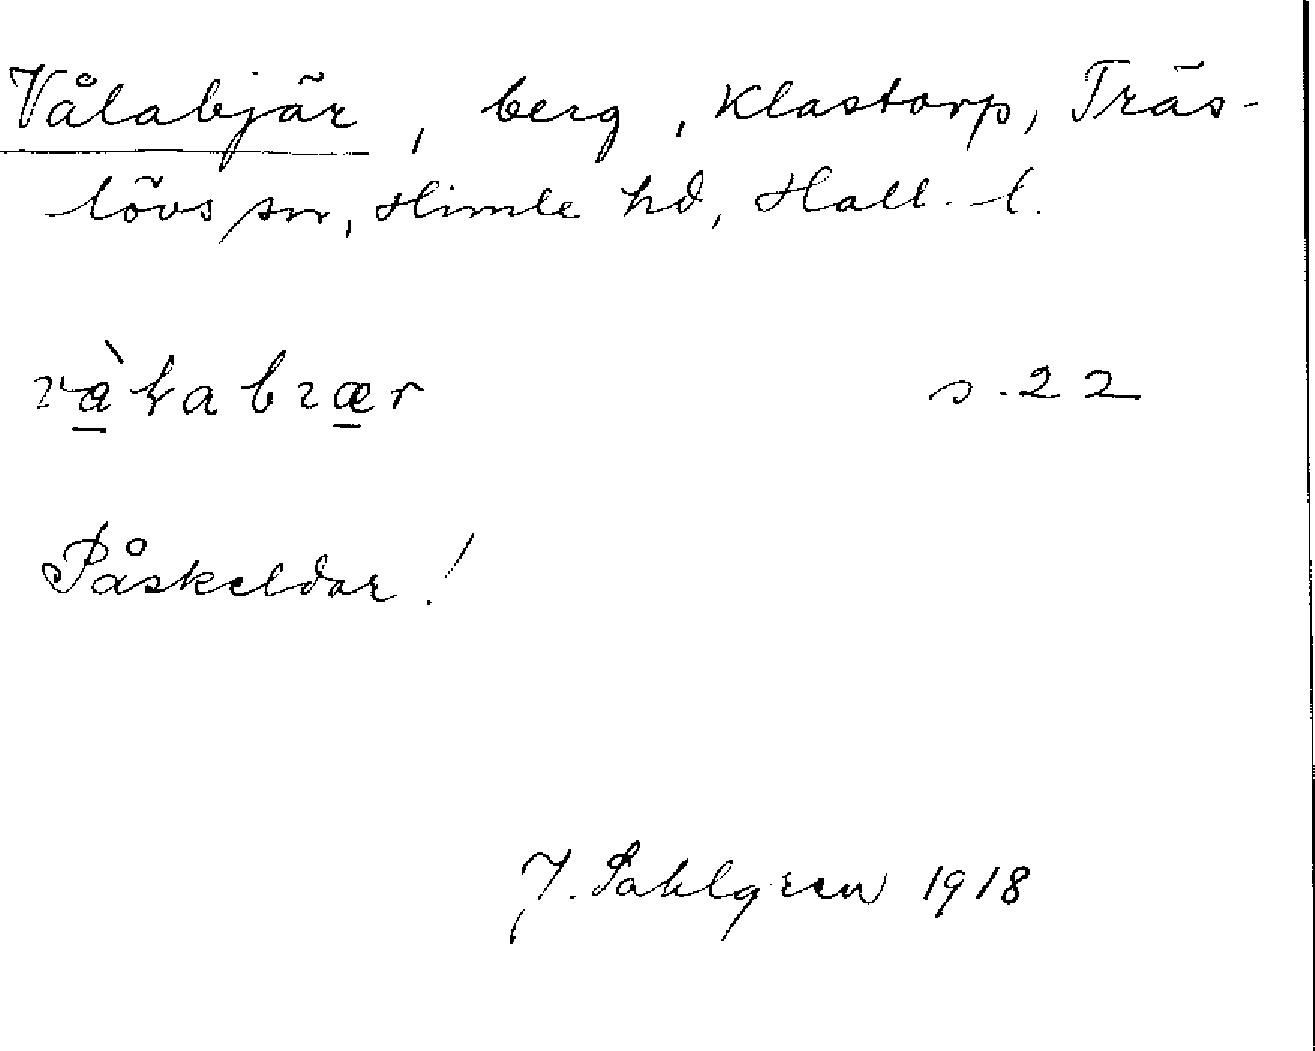 Vålabjär, berg, Klastorp, Träs-
lövs sn, Himle hd, Hall. l.
s. 22
Påskeldar!
J. Sahlgren 1918